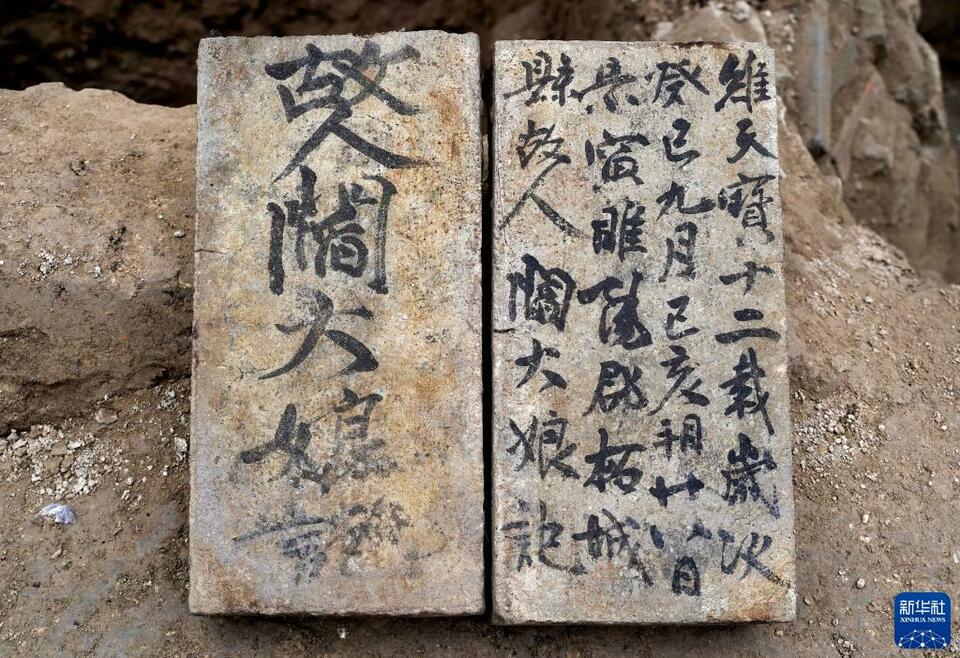 維天寶十二載歲次
癸巳九月己亥朔廿八日
景寅睢陽郡柘城
縣故人閻大娘記
故人閻大娘
新华社
XINHUA NEWS